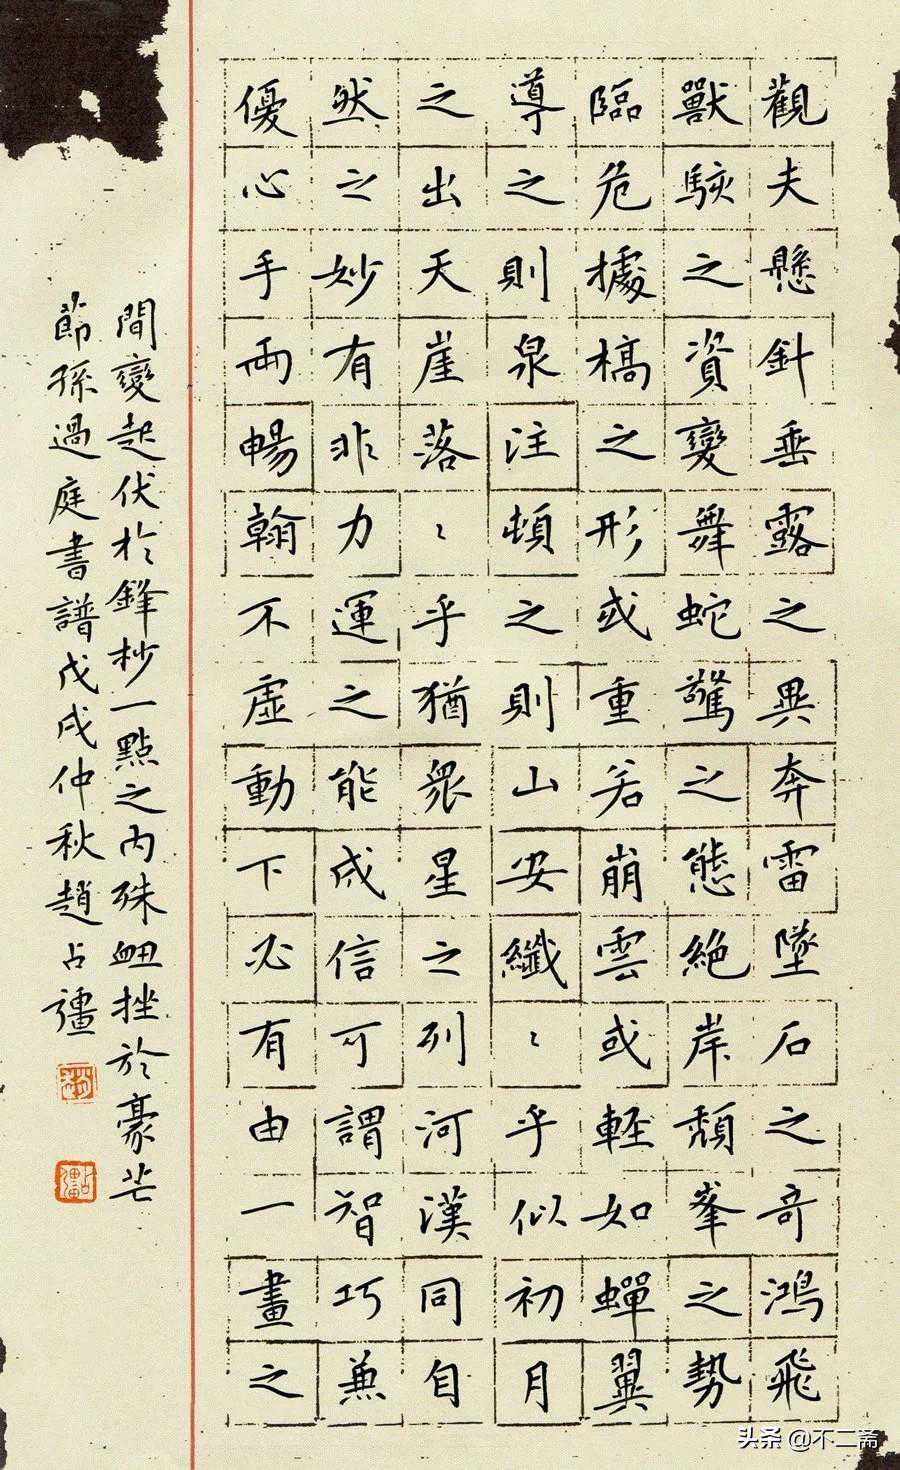 觀夫懸針垂露之異奔雷墜石之奇鴻飛
獸駭之資變舞蛇驚之態絕岸頹峯之勢
臨危據槁之形或重若崩雲或輕如蟬翼
導之則泉注頓之則山安纖〻乎似初月
之出天崖落〻乎猶眾星之列河漢同自
然之妙有非力運之能成信可謂智巧兼
優心手兩暢翰不虛動下必有由一畫之
間變起伏於鋒杪一點之內殊衄挫於豪芒
節孫過庭書譜戊戌仲秋趙占彊
头条 @不二斋